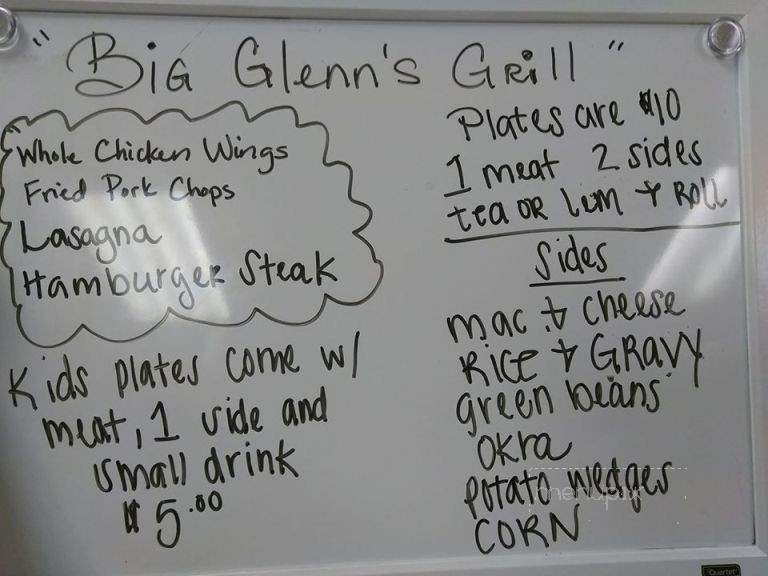 "Big Glenn's Grill"
Whole Chicken Wings
Fried Pork Chops
Lasagna
Hamburger Steak
Kids plates come w/
meat, 1 side and
small drink
$5.00
Plates are $10
1 meat 2 sides
tea OR lem + Roll
Sides
mac + cheese
RICE + GRAVY
green beans
OKra
potato wedges
CORN
menupix
Quartet